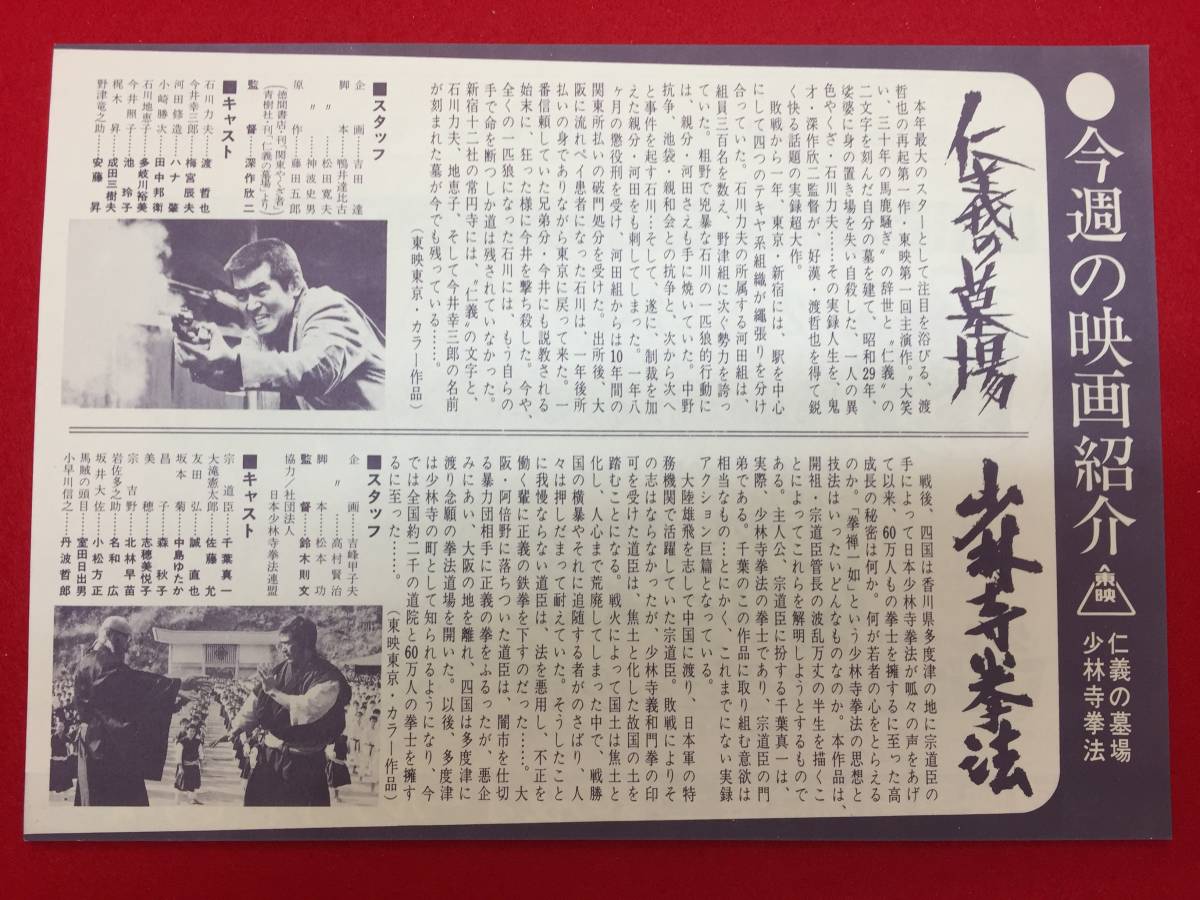 ●今週の映画紹介
東映
仁義の墓場
少林寺拳法
仁義の墓場
本年最大のスターとして注目を浴びる、渡
哲也の再起第一作・東映第一回主演作。〝大笑
い、三十年の馬鹿騒ぎ〟の辞世と〝仁義〟の
二文字を刻んだ自分の墓を建て、昭和29年、
娑婆に身の置き場を失い自殺した、一人の異
色やくざ・石川力夫……その実録人生を、鬼
才・深作欣二監督が、好漢・渡哲也を得て鋭
く抉る話題の実録超大作。
敗戦から一年、東京・新宿には、駅を中心
にして四つのテキヤ系組織が縄張りを分け
合っていた。石川力夫の所属する河田組は、
組員三百名を数え、野津組に次ぐ勢力を誇っ
ていた。粗野で兇暴な石川の一匹狼的行動に
は、親分・河田さえも手に焼いていた。中野
抗争、池袋・親和会との抗争と、次から次へ
と事件を起す石川…そして、遂に、制裁を加
えた親分・河田をも刺してしまった。一年八
ヶ月の懲役刑を受け、河田組からは10年間の
関東所払いの破門処分を受けた。出所後、大
阪に流れペイ患者になった石川は、一年後所
払いの身でありながら東京に戻って来た。一
番信頼していた兄弟分・今井にも説教される
始末に、狂った様に今井を撃ち殺した。今や、
全くの一匹狼になった石川には、もう自らの
手で命を断つしか道は残されていなかった。
新宿十二社の常円寺には、〝仁義〟の文字と、
石川力夫、地恵子、そして今井幸三郎の名前
が刻まれた墓が今でも残っている……。
(東映東京・カラー作品)
■スタッフ
企画……吉田達
脚本……鴨井達比古
〃……松田寛夫
〃……神波史男
原作……藤田五郎
(徳間書店・刊「関東やくざ者」
青樹社・刊「仁義の墓場」より)
監督……深作欣二
■キャスト
石川力夫……渡哲也
今井幸三郎……梅宮辰夫
河田修造……ハナ肇
小崎勝次……田中邦衛
石川地恵子……多岐川裕美
今井照子……池玲子
梶木昇……成田三樹夫
野津竜之助……安藤昇
少林寺拳法
戦後、四国は香川県多度津の地に宗道臣の
手によって日本少林寺拳法が呱々の声をあげ
て以来、60万人もの拳士を擁するに至った高
成長の秘密は何か。何が若者の心をとらえる
のか。「拳禅一如」という少林寺拳法の思想と
技法はいったいどんなものなのか。本作品は、
開祖・宗道臣管長の波乱万丈の半生を描くこ
とによってこれらを解明しようとするもので
ある。主人公、宗道臣に扮する千葉真一は、
実際、少林寺拳法の拳士であり、宗道臣の門
弟である。千葉のこの作品に取り組む意欲は
相当なもの…とにかく、これまでにない実録
アクション巨篇となっている。
大陸雄飛を志して中国に渡り、日本軍の特
務機関で活躍していた宗道臣。敗戦によりそ
の志はならなかったが、少林寺義和門拳の印
可を受けた道臣は、焦土と化した故国の土を
踏むことになる。戦火によって国土は焦土と
化し、人心まで荒廃してしまった中で、戦勝
国の横暴やそれに追随する者がのさばり、人
々は押しだまって耐えていた。そうしたこと
に我慢ならない道臣は、法を悪用し、不正を
働く輩に正義の鉄拳を下すのだった……。大
阪・阿倍野に落ちついた道臣は、闇市を仕切
る暴力団相手に正義の拳をふるったが、悪企
みにあい、大阪の地を離れ、四国は多度津に
渡り念願の拳法道場を開いた。以後、多度津
は少林寺の町として知られるようになり、今
では全国約二千の道院と60万人の拳士を擁す
るに至った……。
(東映東京・カラー作品)
■スタッフ
企画……吉峰甲子夫
〃……高村賢治
脚本……松本功
監督……鈴木則文
協力/社団法人
日本少林寺拳法連盟
■キャスト
宗道臣……千葉真一
大滝憲太郎……佐藤允
友田弘……誠直也
坂本菊……中島ゆたか
昌子……森秋子
美穂……志穂美悦子
宗吉野……北林早苗
岩佐多之助……名和広
坂井大佐……小松方正
馬賊の頭目……室田日出男
小早川信之……丹波哲郎